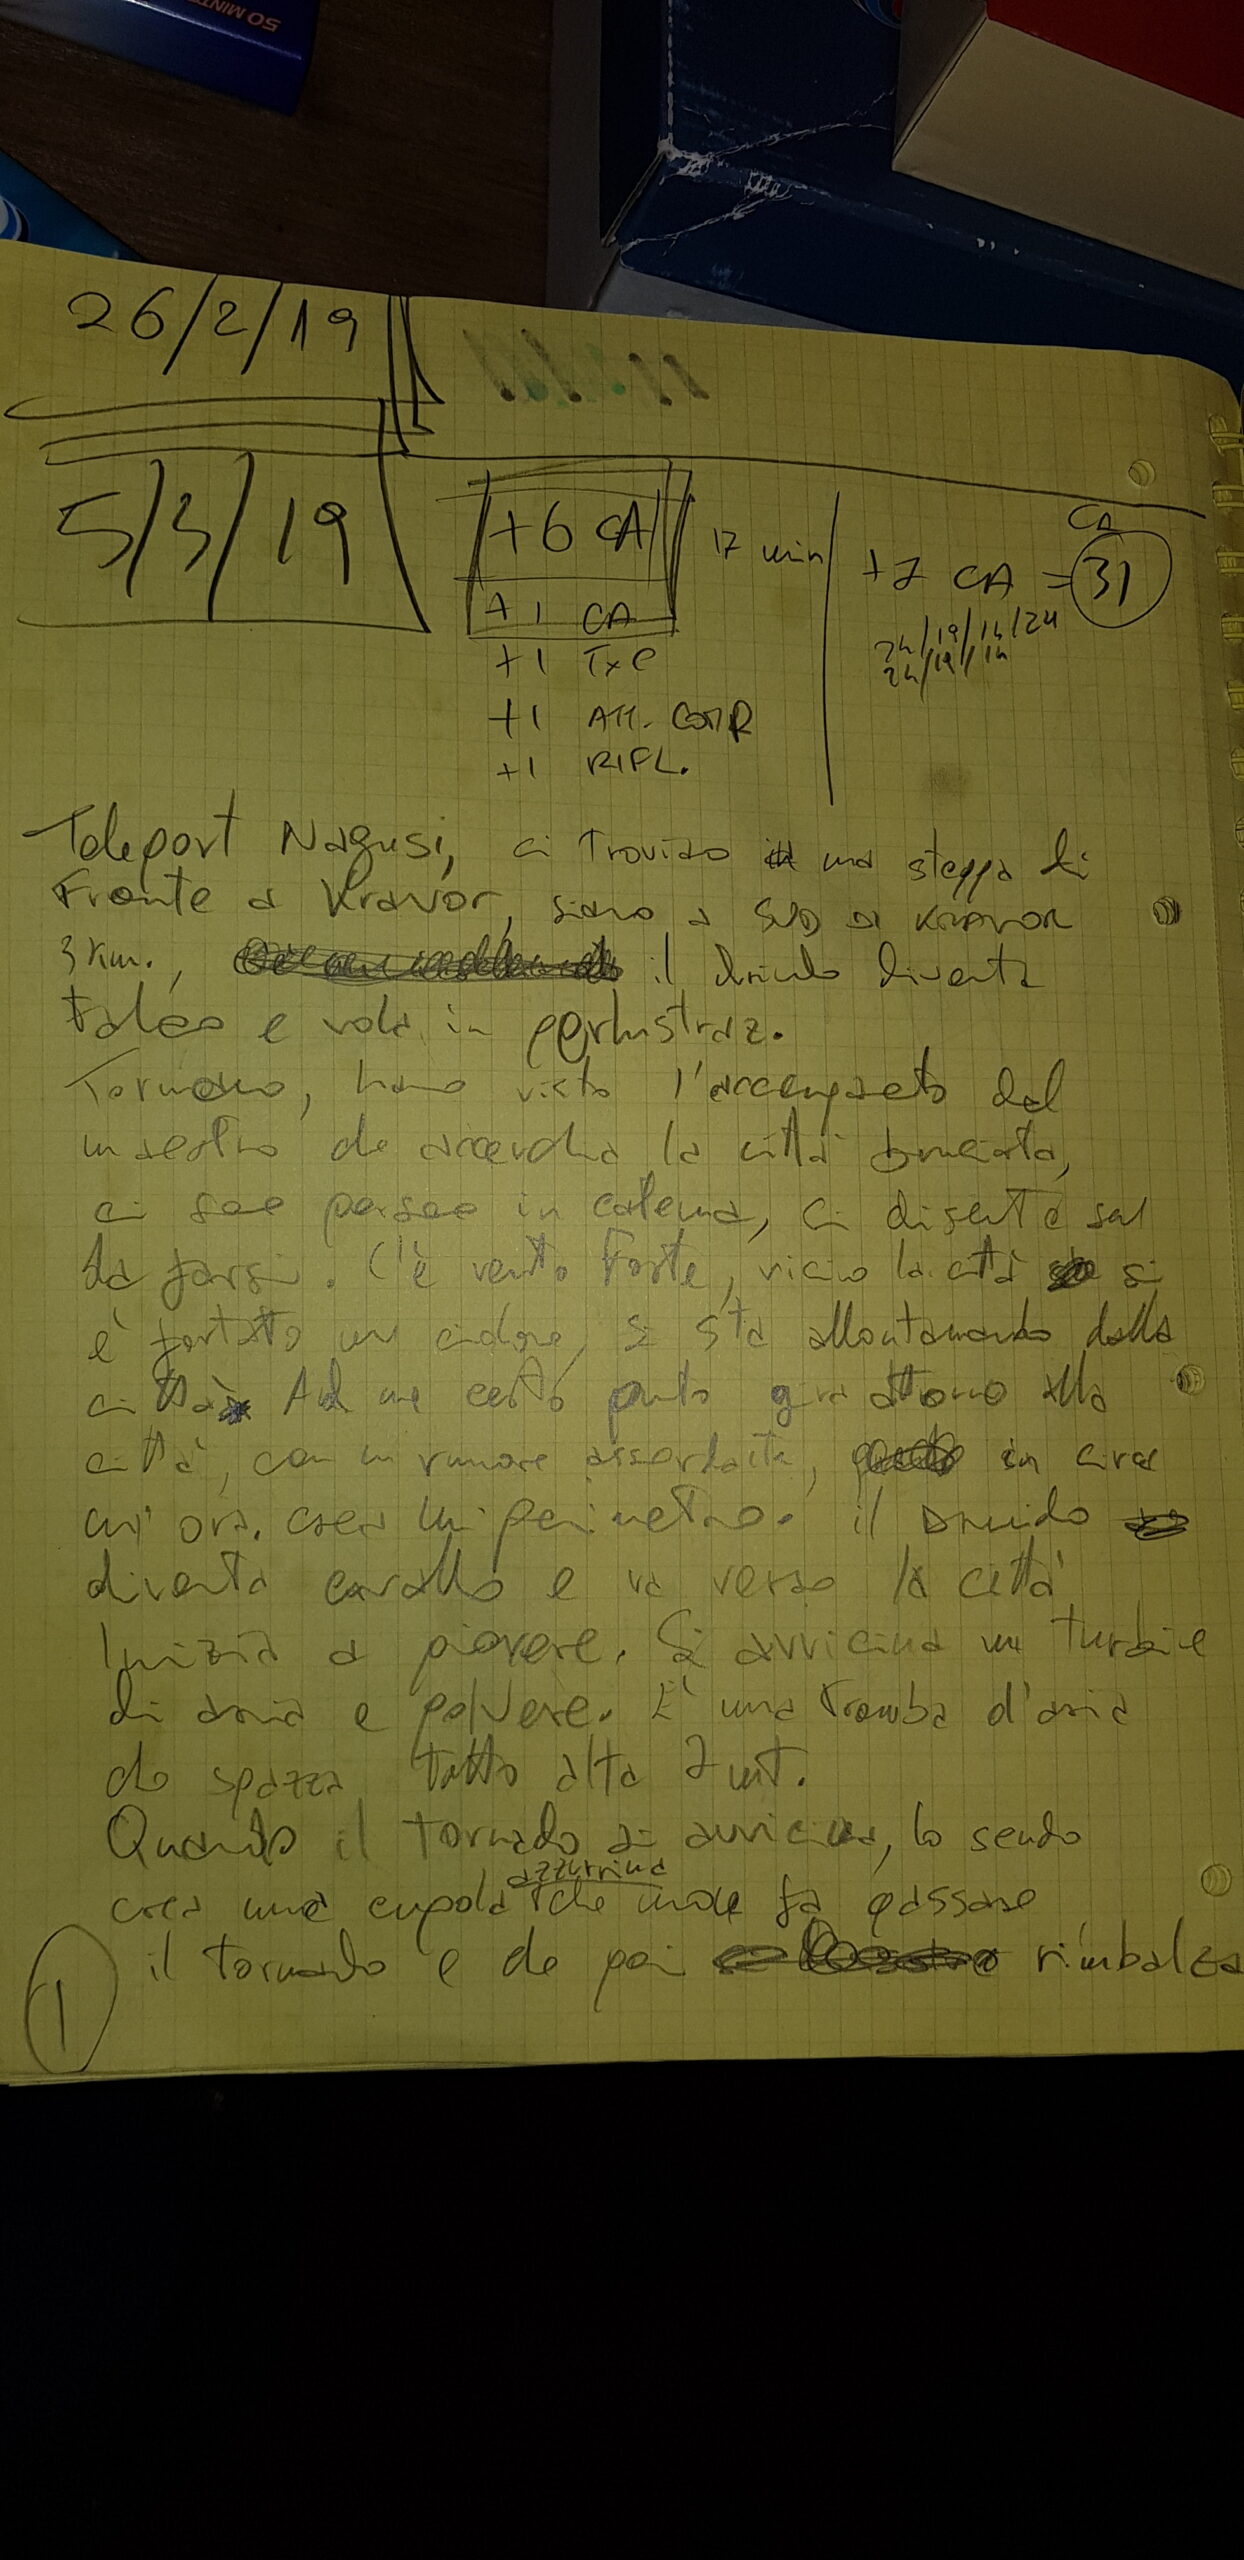 50 MINTS
26/2/19
5/3/19
+6 CA 17 min +7 CA = 31 CA
+1 CA 24/19/14/24
+1 TxC 24/19/14
+1 ATT. CONTR
+1 RIFL.
Teleport Nagusi, ci troviamo in una steppa di
Fronte a Kravor, siamo a SUD DI KRAVOR
3 km., il druido diventa
falco e vola in perlustraz.
Tornano, hanno visto l'accampamento del
maestro che accerchia la città bruciata,
ci sono persone in catena, ci discute sul
da farsi. C'è vento forte, vicino la città si
è formato un ciclone, si sta allontanando dalla
città. Ad un certo punto gira attorno alla
città, con un rumore assordante, in circa
un'ora. crea un perimetro. il Druido
diventa cavallo e va verso la città
Inizia a piovere. Si avvicina un turbine
di aria e polvere. È una tromba d'aria
che spazza tutto alta 7 mt.
Quando il tornado si avvicina, lo scudo
crea una cupola azzurrina che non fa passare
il tornado e che poi rimbalza
1